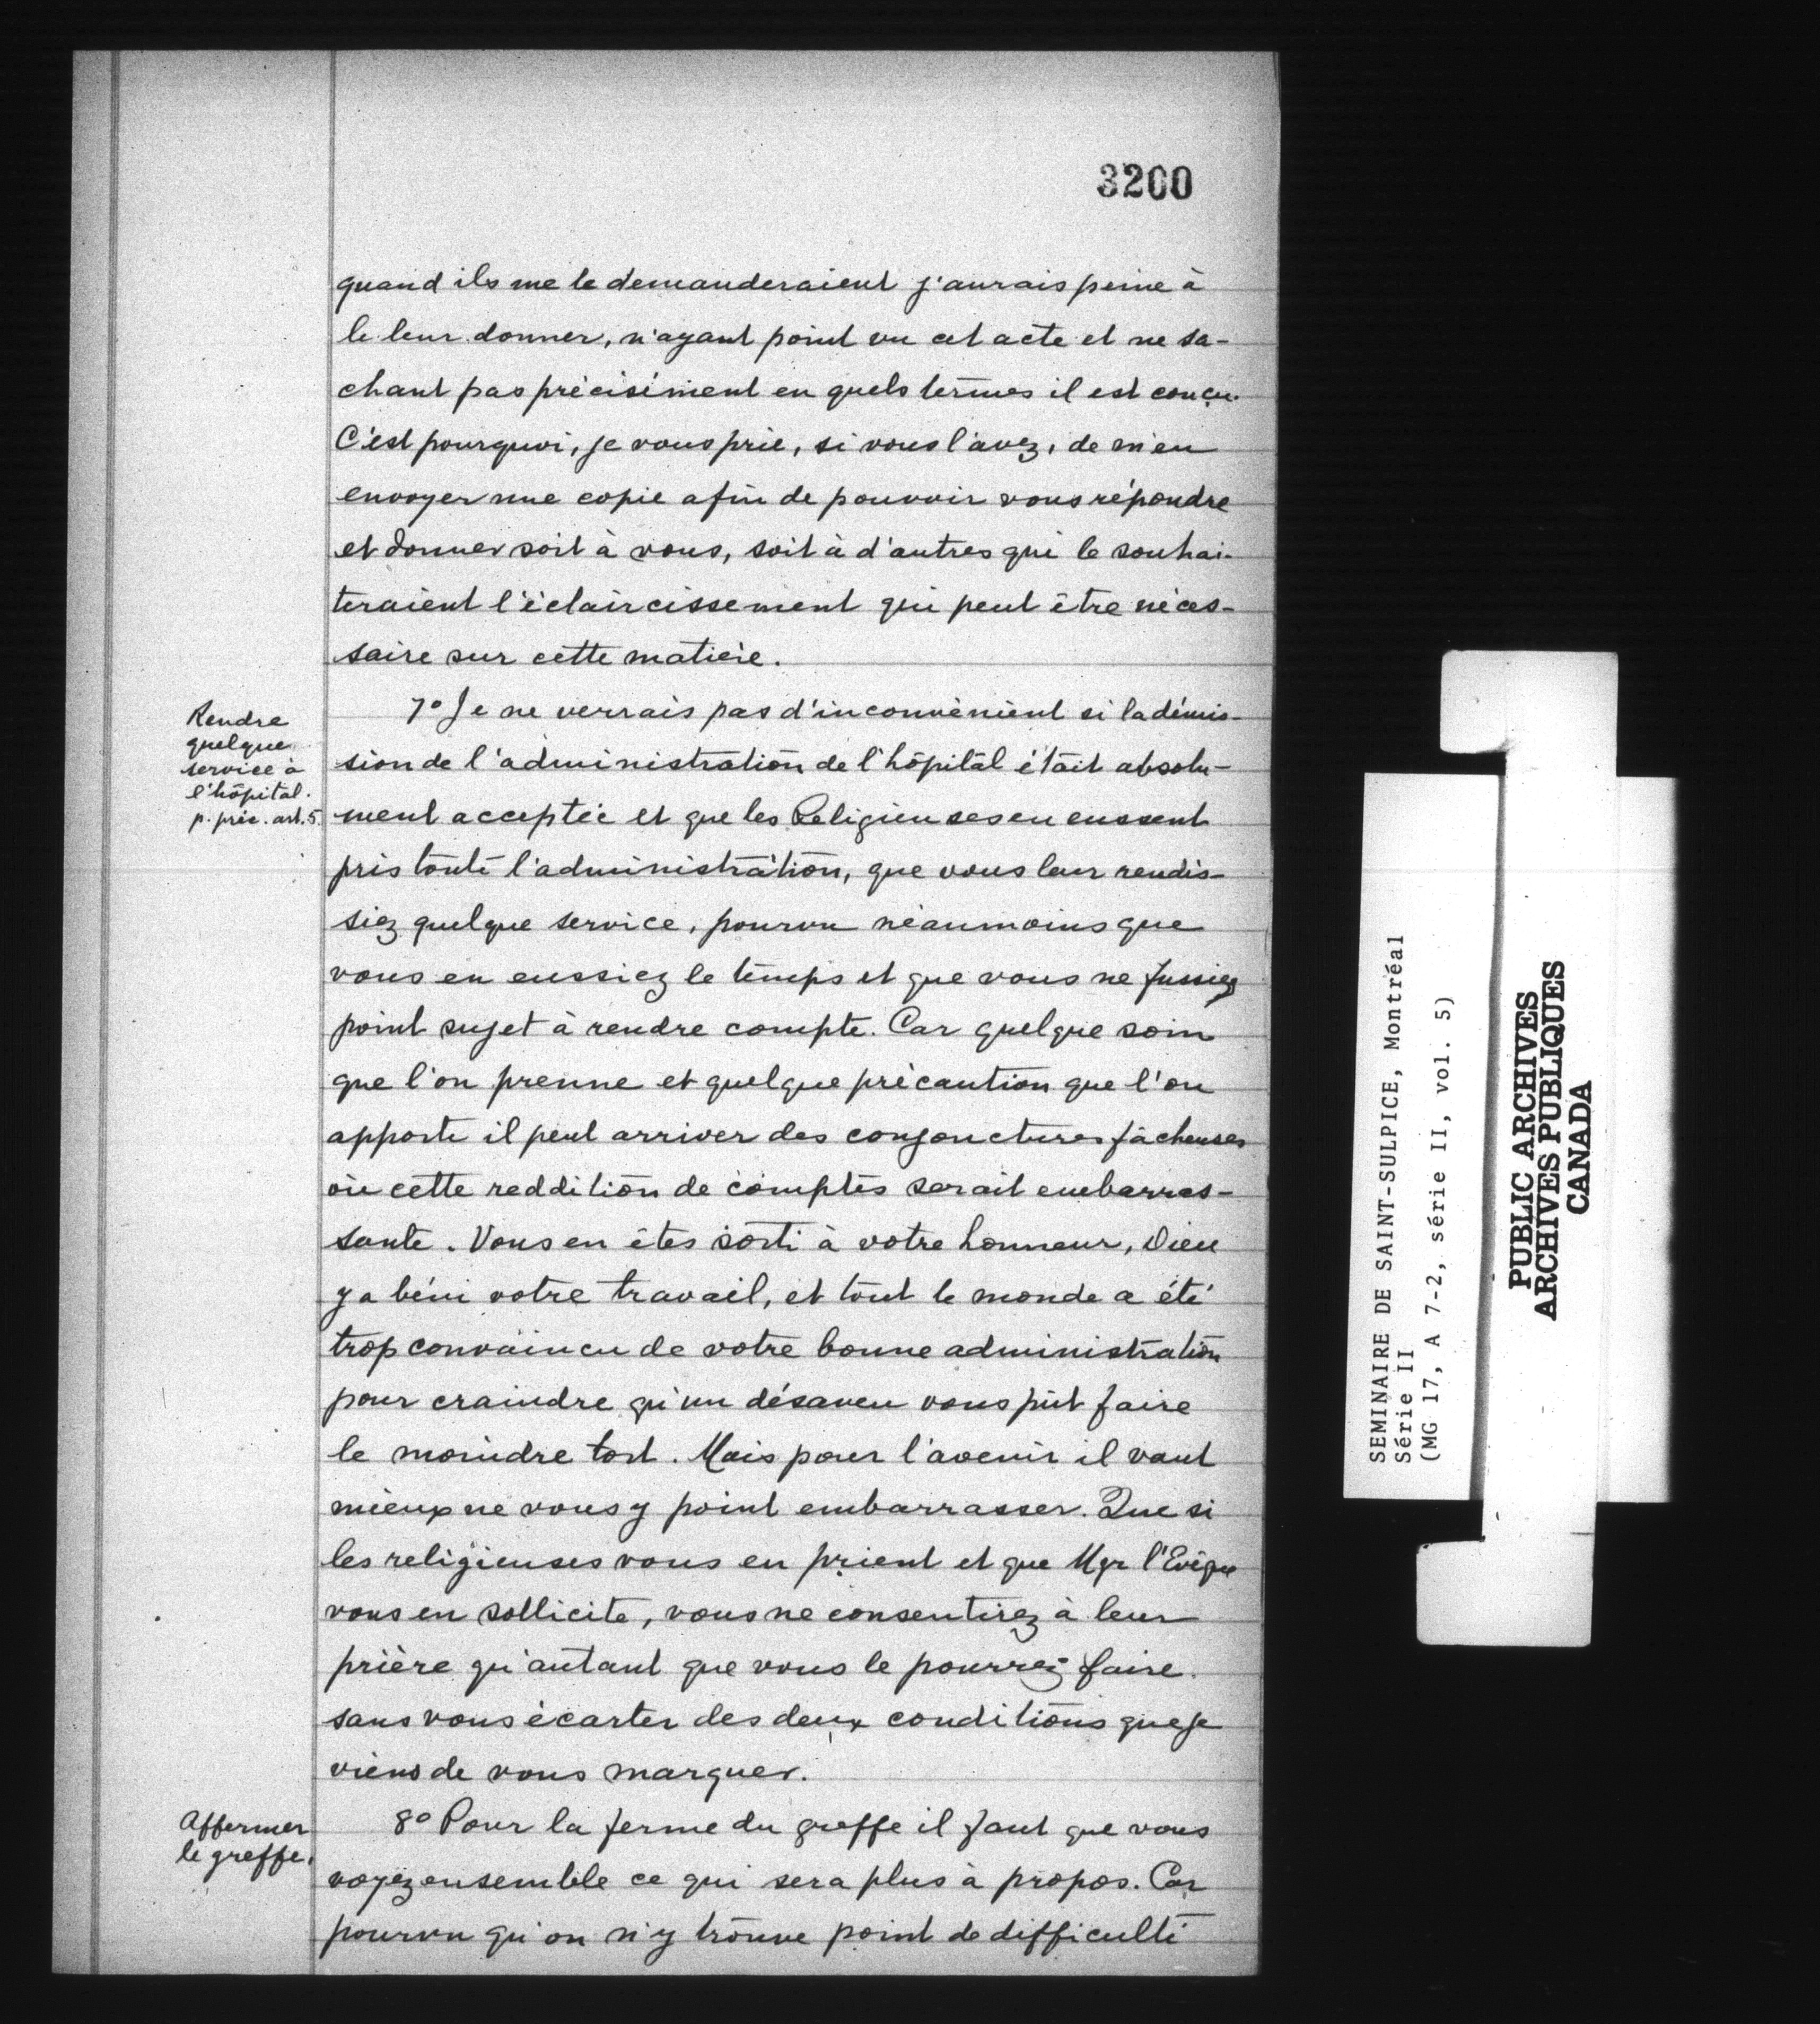 3200
quand ils me le demanderaient j'aurais peine à
le leur donner, n'ayant point vu cet acte et ne sa-
chant pas précisément en quels termes il est conçu.
C'est pourquoi, je vous prie, si vous l'avez, de m'en
envoyer une copie afin de pouvoir vous répondre
et donner soit à vous, soit à d'autres qui le souhai-
teraient l'éclaircissement qui peut être néces-
saire sur cette matière.
Rendre
quelque
service à
l'hôpital.
p. préc. art. 5.
7° Je ne verrais pas d'inconvénient si la démis-
sion de l'administration de l'hôpital était absolu-
ment acceptée et que les Religieuses en eussent
pris toute l'administration, que vous leur rendis-
siez quelque service, pourvu néanmoins que
vous en eussiez le temps et que vous ne fussiez
point sujet à rendre compte. Car quelque soin
que l'on prenne et quelque précaution que l'on
apporte il peut arriver des conjonctures fâcheuses
où cette reddition de comptes serait embarras-
sante. Vous en êtes sorti à votre honneur, Dieu
y a béni votre travail, et tout le monde a été
trop convaincu de votre bonne administration
pour craindre qu'un désaveu vous pût faire
le moindre tort. Mais pour l'avenir il vaut
mieux ne vous y point embarrasser. Que si
les religieuses vous en prient et que Mgr l'Evêque
vous en sollicite, vous ne consentirez à leur
prière qu'autant que vous le pourrez faire
sans vous écarter des deux conditions que je
viens de vous marquer.
Affermer
le greffe.
8° Pour la ferme du greffe il faut que vous
voyez ensemble ce qui sera plus à propos. Car
pourvu qu'on n'y trouve point de difficulté
SEMINAIRE DE SAINT-SULPICE, Montréal
Série II
(MG 17, A 7-2, série II, vol. 5)
PUBLIC ARCHIVES
ARCHIVES PUBLIQUES
CANADA